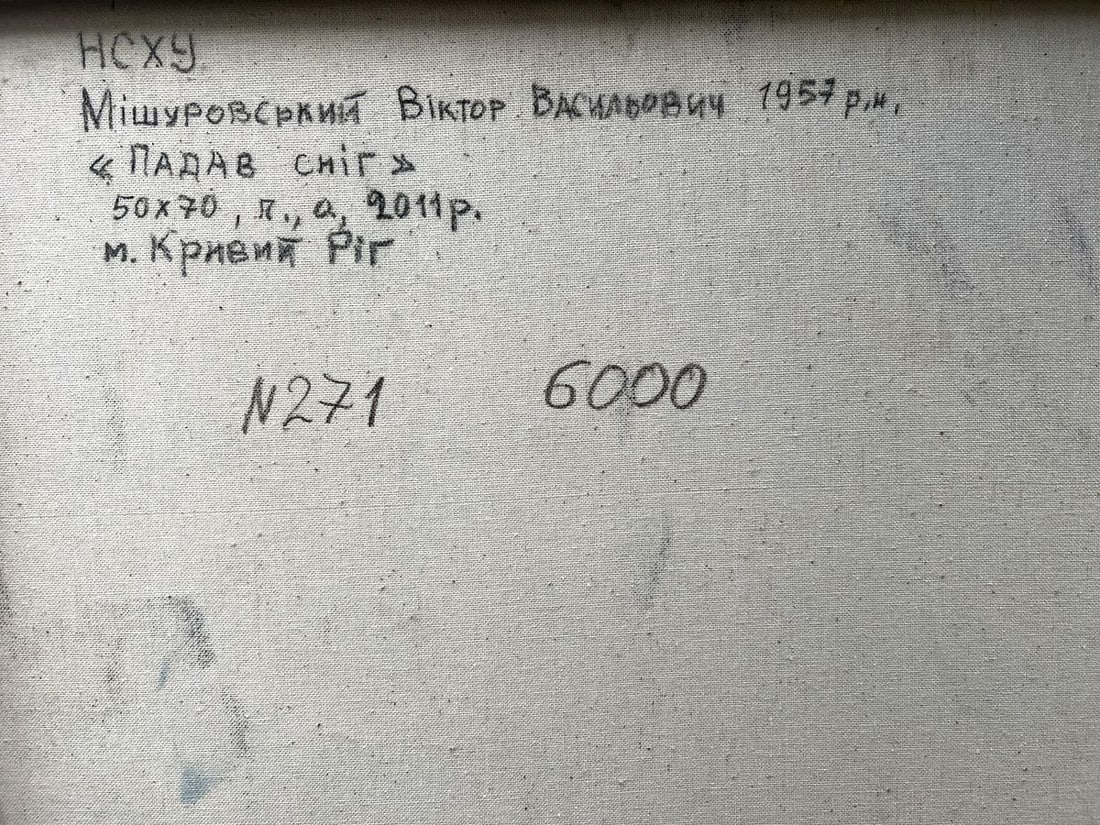 НСХУ
Мішуровський Віктор Васильович 1957 р.н.
«ПАДАВ СНІГ»
50х70, п., а, 2011р.
м. Кривий Ріг
N271 6000